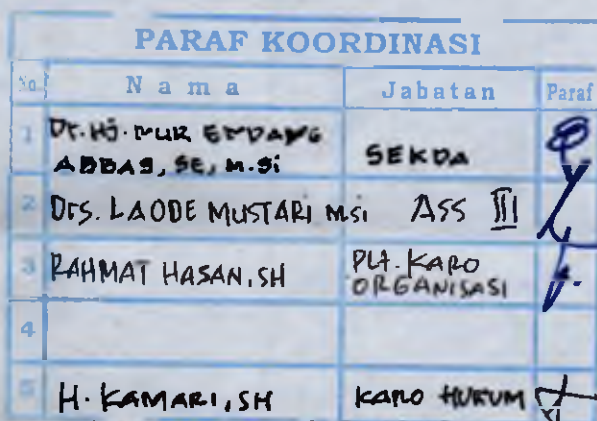 PARAF KOORDINASI
No N a m a Jabatan Paraf
1 Dr. Hj. NUR ENDANG
ABBAS, SE, M.Si SEKDA
2 Drs. LAODE MUSTARI MSi ASS III
3 RAHMAT HASAN, SH PLt. KARO
ORGANISASI
4
5 H. KAMARI, SH KARO HUKUM